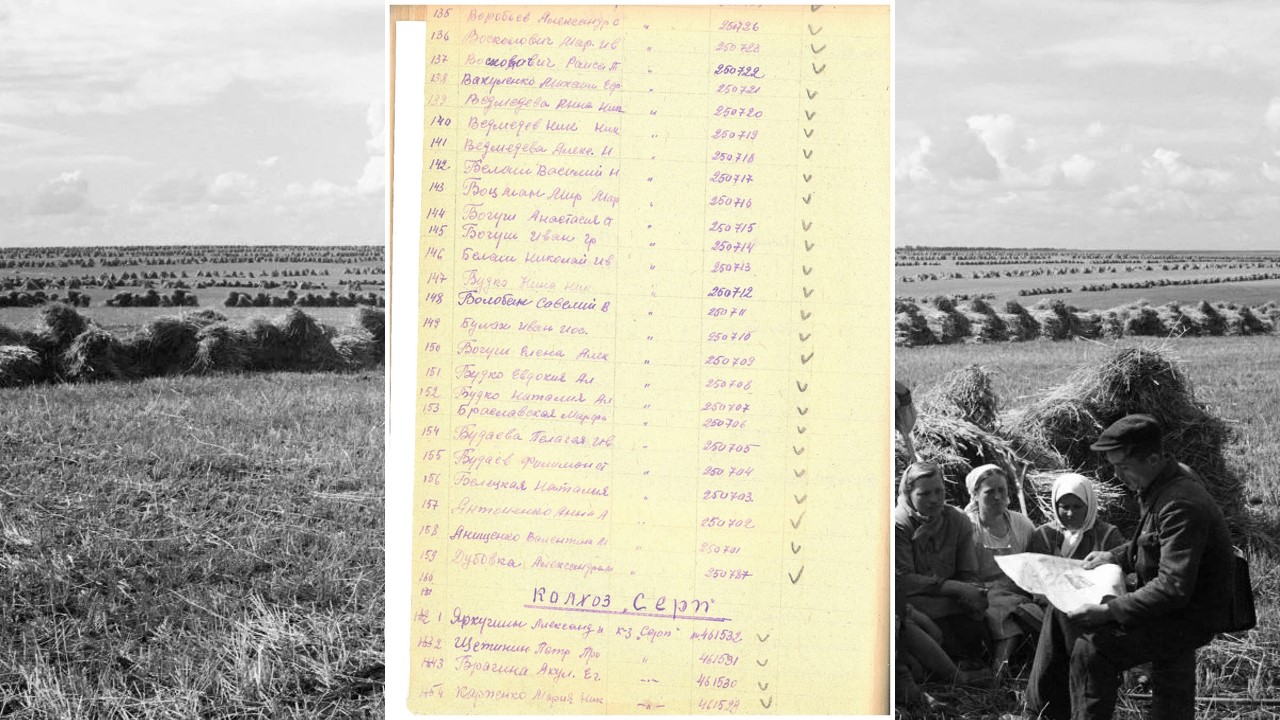 135 Воробьев Александр С " 250726 ✓
136 Восколович Мар. Ив " 250723 ✓
137 Раиса П " 250722 ✓
138 Вакуленко Михаил Еф " 250721 ✓
139 Ведмедева Анна Ник " 250720 ✓
140 Ведмедев Ник Ник " 250719 ✓
141 Ведмедева Алекс. Н " 250718 ✓
142 Белаш Василий Н " 250717 ✓
143 Воцман Мир Мар " 250716 ✓
144 Богуш Анастасия " 250715 ✓
145 Богуш Иван Гр " 250714 ✓
146 Белаш Николай Ив " 250713 ✓
147 Будко Нина Ник " 250712 ✓
148 Волобан Савелий В " 250711 ✓
149 Булах Иван Иос. " 250710 ✓
150 Богуш Елена Алек " 250709 ✓
151 Будко Евдокия Ал " 250708 ✓
152 Будко Наталия Ал " 250707 ✓
153 Браславская Марфа " 250706 ✓
154 Будаева Пелагея Ив " 250705 ✓
155 Будаев " 250704 ✓
156 Белецкая Наталия " 250703 ✓
157 Антоненко Анна А " 250702 ✓
158 Анищенко Валентина М " 250701 ✓
159 Дубовка " 250787 ✓
160
161
КОЛХОЗ "Серп"
1 Яркушин Александ н к-з "Серп" № 461532 ✓
2 Щетинин Петр Про " 461531 ✓
3 Брагина Акул. Ег. —"— 461530 ✓
4 Карпенко Мария Ник —"— 461529 ✓